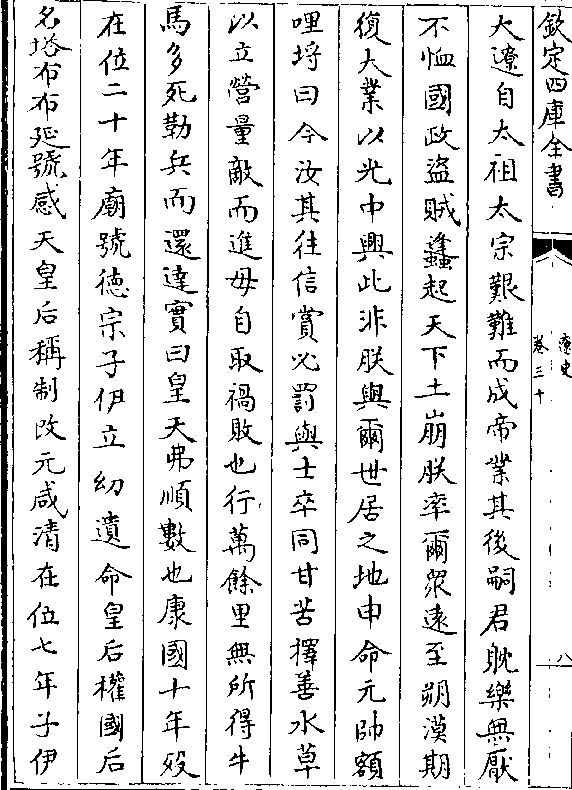 欽定四庫全書
遼史
卷三十
八
大遼自太祖太宗艱難而成帝業其後嗣君耽樂無厭
不恤國政盜賊蠭起天下土崩朕率爾眾遠至朔漠期
復大業以光中興此非朕與爾世居之地申命元帥額
哩埒曰今汝其往信賞必罰與士卒同甘苦擇善水草
以立營量敵而進毋自取禍敗也行萬餘里無所得牛
馬多死勒兵而還達實曰皇天弗順數也康國十年歿
在位二十年廟號德宗子伊立幼遺命皇后權國后
名塔布布延號感天皇后稱制改元咸清在位七年子伊